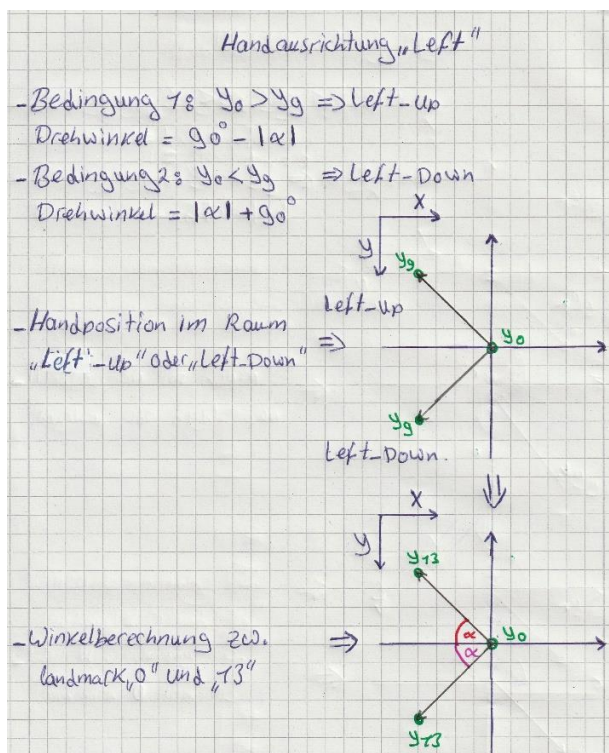 Handausrichtung „Left"
- Bedingung 1: y0 > y9 => Left-Up
Drehwinkel = 90° - |α|
- Bedingung 2: y0 < y9 => Left-Down
Drehwinkel = |α| + 90°
X
y
y9
Left-Up
- Handposition im Raum =>
„Left"-Up" oder „Left-Down"
y0
y9
Left-Down.
X
y
y13
α
y0
- Winkelberechnung zw. =>
α
landmark „0" und „13"
y13